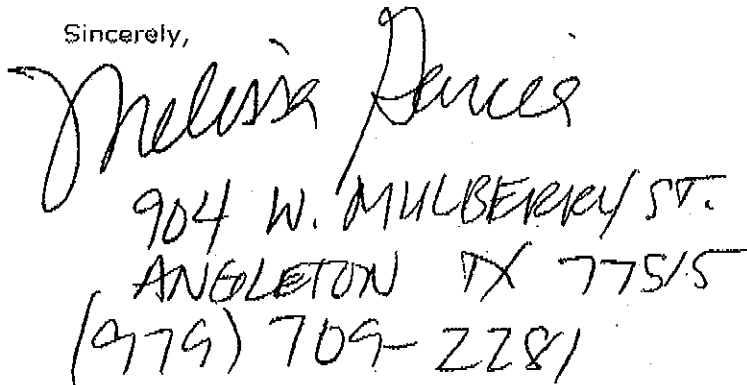 Sincerely,
Melissa Garcia
904 W. MULBERRY ST.
ANGLETON TX 77515
(979) 709-2281